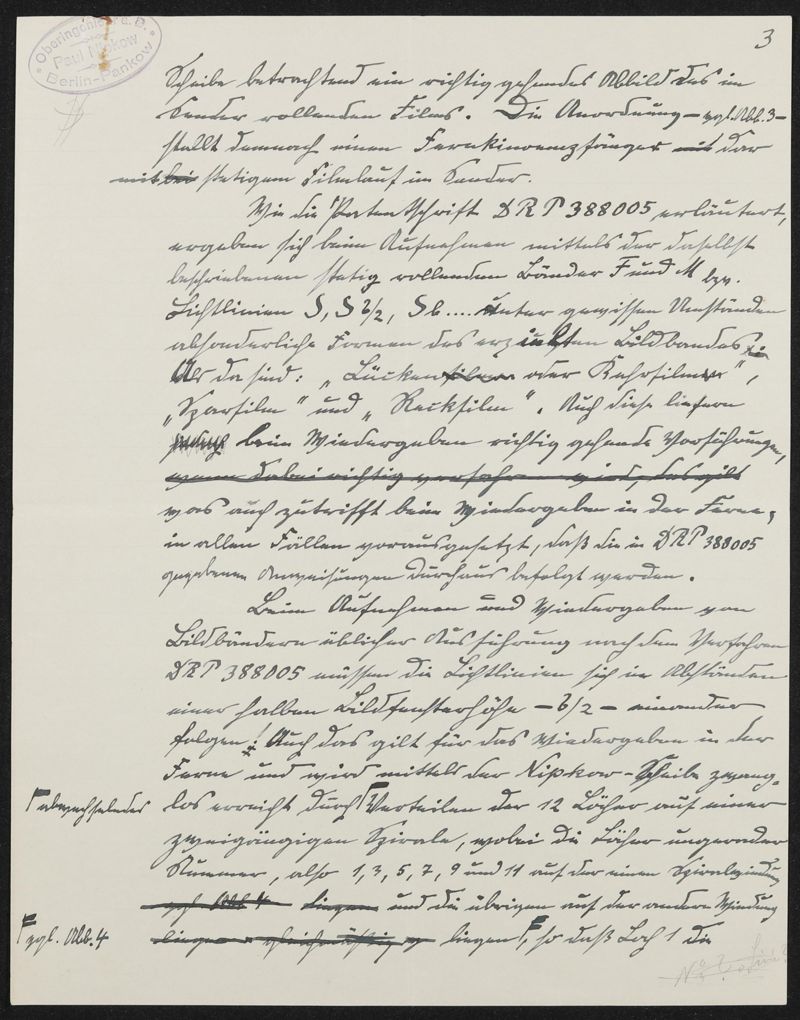 Oberingenieur a. D.
Paul Nipkow
Berlin-Pankow
3
Scheibe betrachtend ein richtig gehendes Abbild des im
Sender rollenden Films. Die Anordnung – vgl. Abb. 3 –
stellt demnach einen Fernkinoempfänger mit dar
mit bei stetigem Filmlauf im Sender.
Wie die Patentschrift DRP 388005 erläutert,
ergeben sich beim Aufnehmen mittels der daselbst
beschriebenen stetig rollenden Bänder F und M bzw.
Lichtlinien S, S b/2, S b .... unter gewissen Umständen
absonderliche Formen des erzielten Bildbandes
Als da sind: „Lückenfilm oder Kehrfilm",
„Sparfilm" und „Reckfilm". Auch diese liefern
beim Wiedergeben richtig gehende Vorführungen,
wenn dabei richtig verfahren wird, das gilt
was auch zutrifft beim Wiedergeben in der Ferne,
in allen Fällen vorausgesetzt, daß die in DRP 388005
gegebenen Anweisungen durchaus befolgt werden.
Beim Aufnehmen und Wiedergeben von
Bildbändern üblicher Ausführung nach dem Verfahren
DRP 388005 müssen die Lichtlinien sich in Abständen
einer halben Bildfensterhöhe – b/2 – einander
folgen! Auch das gilt für das Wiedergeben in der
Ferne und wird mittels der Nipkow-Scheibe zwang-
abwechselndes los erreicht durch Verteilen der 12 Löcher auf einer
zweigängigen Spirale, wobei die Löcher ungerader
Nummer, also 1, 3, 5, 7, 9 und 11 auf der einen Spiralwindung
vgl. Abb. 4 liegen und die übrigen auf der andern Windung
vgl. Abb. 4 liegen gleichmäßig liegen, so daß Loch 1 die